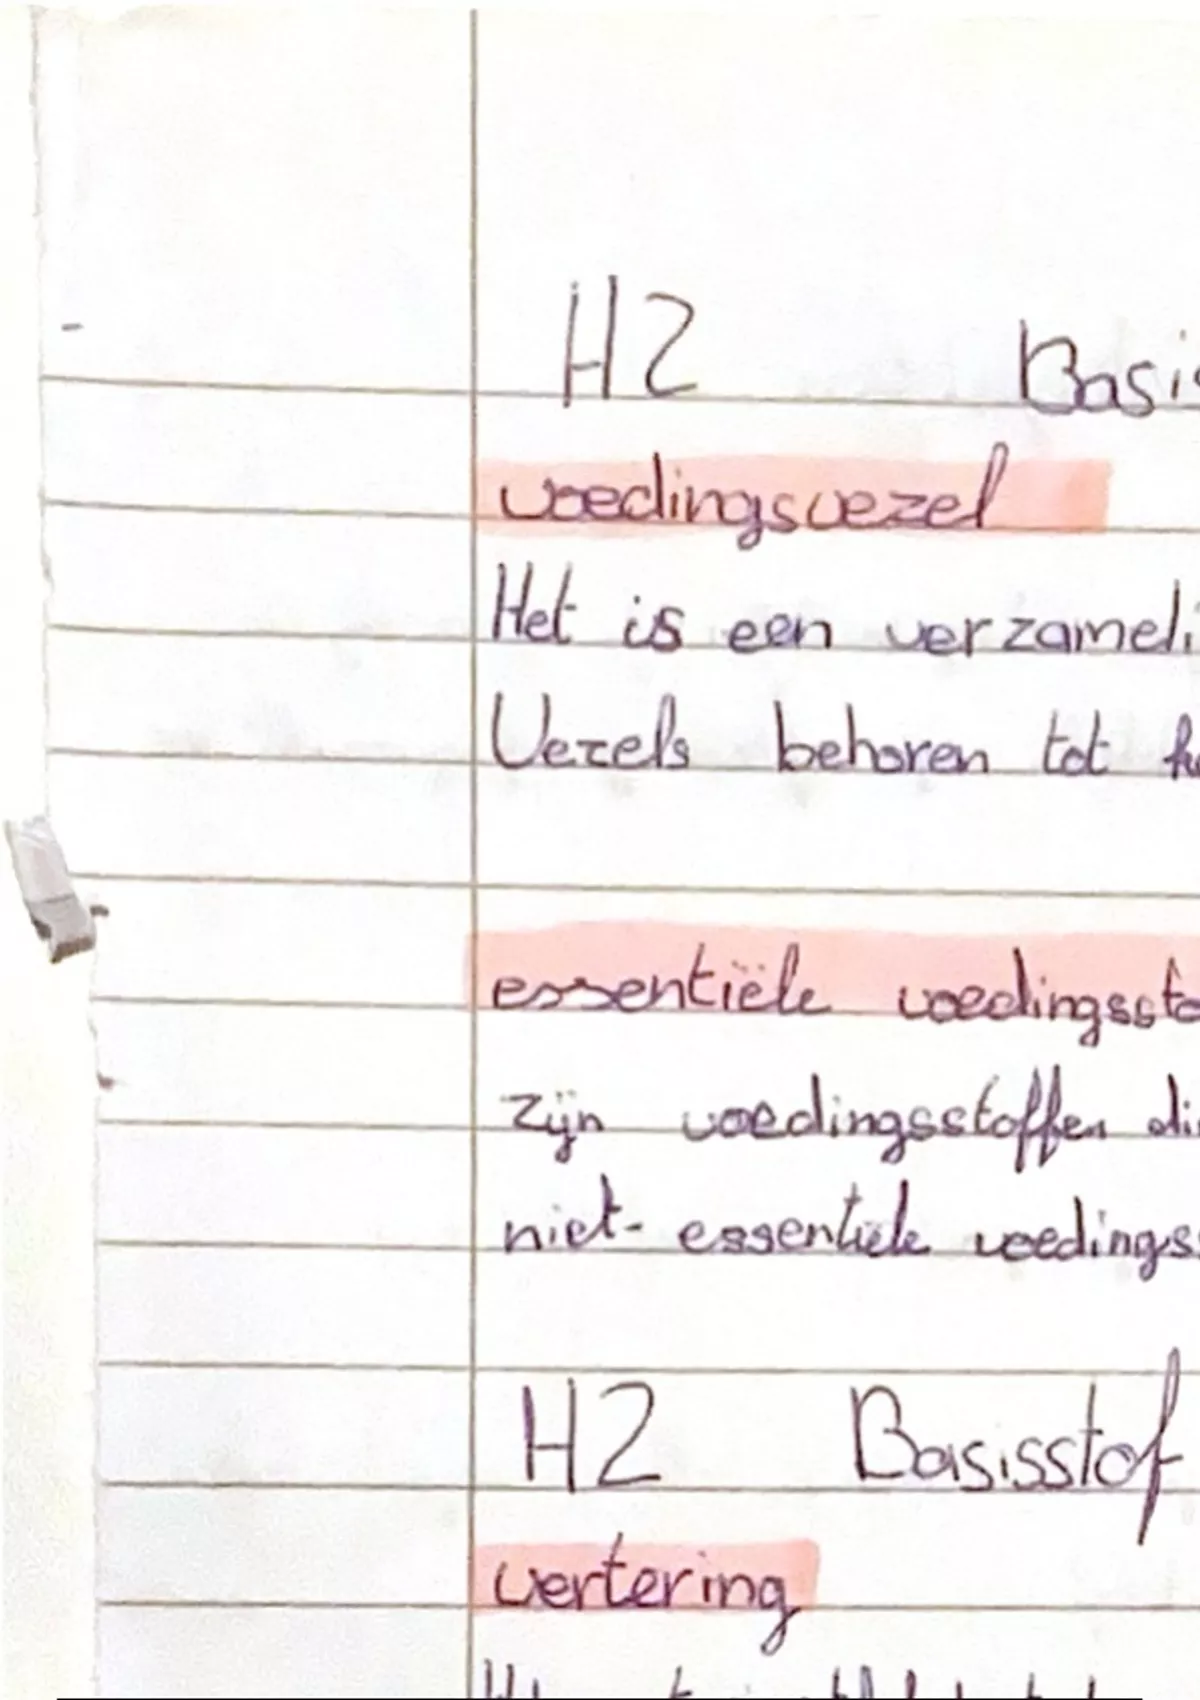 H2 Basis
voedingsvezel
Het is een verzameli
Vezels behoren tot
essentiële voedingssto
zijn voedingsstoffen di
niet-essentiële voedingss
H2 Basisstof
vertering